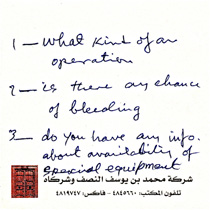 1 — What kind of an
operation
2 — is there any chance
of bleeding
3 — do you have any info.
about availability of
special equipment
شركة محمد بن يوسف النصف وشركاه
تلفون المكتب: ٤٨٤٥٦٦٠ - فاكس: ٤٨١٩٧٤٧